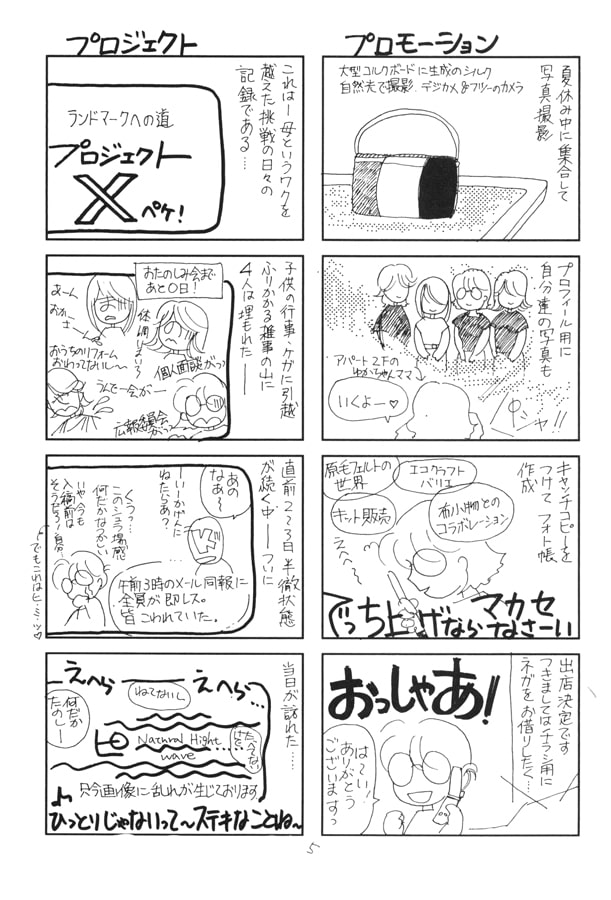 プロモーション
夏休み中に集合して
写真撮影
大型コルクボードに生成のシルク
自然光で撮影.デジカメ&フツーのカメラ
プロフィール用に
自分達の写真も
アパート2Fの
ゆかちゃんママ
いくよー♡
パシャ!!
キャッチコピーを
つけてフォト帳
作成
原毛フェルトの
世界
エコクラフト
バリエ
キット販売
布小物との
コラボレーション
えへへ
でっち上げなら
マカセ
なさーい
出店決定です
つきましてはチラシ用に
ネガをお借りしたく…
おっしゃあ!
はーい!
ありがとう
ございますっ
プロジェクト
これはー母というワクを
越えた挑戦の日々の
記録である…
ランドマークへの道
プロジェクト
X
ペケ!
子供の行事、ケガに引越
ふりかかる雑事の山に
4人は埋もれた——
おたのしみ会まで
あと0日!
あーん
おかー
さーん
体調わるいよう
個人面談がっ
おうちのリフォーム
おわってないし〜
うんどー会がー
広報委員会
がっ
直前2〜3日半徹状態
が続く中——ついに
あの
なあ〜
ーいーかげんに
ねたらあ?
くうっ…
このシュラ場感
何だかなつかしい
いや、今も
入稿前は
そうだろう!自分
でもこれはヒ・ミ・ツ♡
午前3時のメール同報に
全員が即レス。
皆こわれていた。
当日が訪れた……
えへら
えへら…
ねてないし
何だか
たのしー
たべてない
けど、
Natural Hight
wave
只今画像に乱れが生じております
♪ひっとりじゃないって〜ステキなことね〜
5